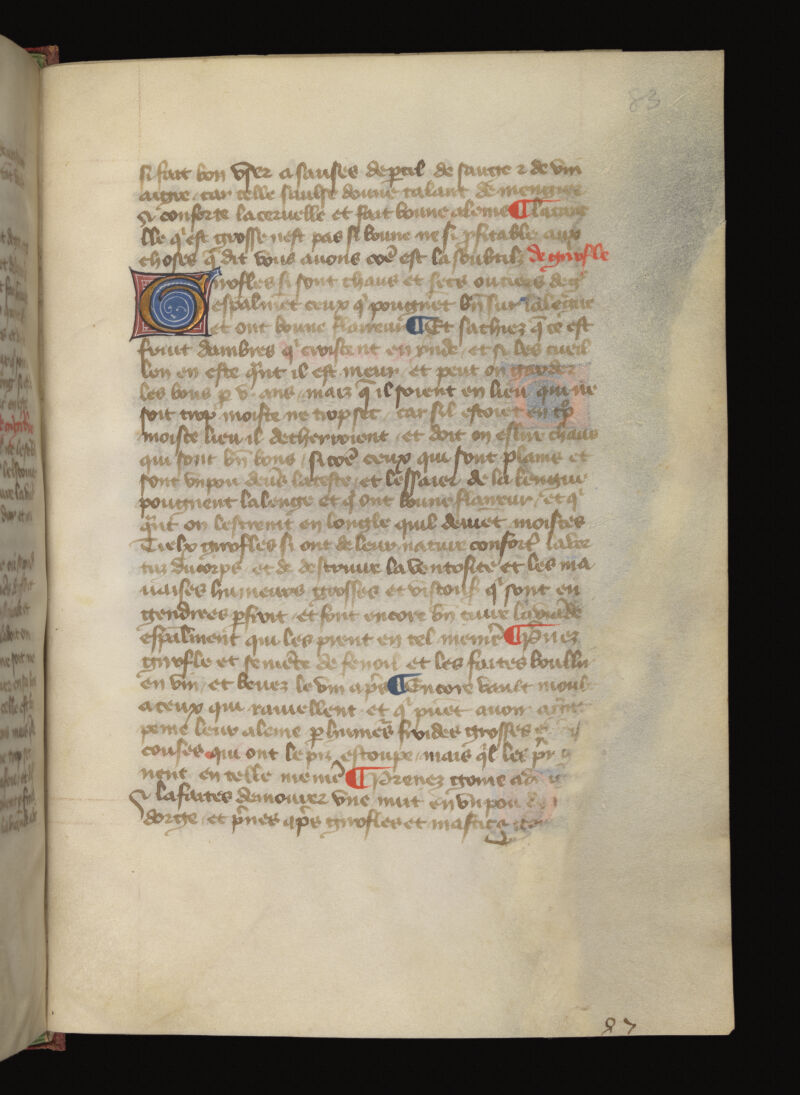 83
si fait bon vser a sauses de p̄cil de sauge ⁊ de vin
aigre. car celle saulse donne talant de mengier
& conforte la ceruelle et fait bonne aleine ¶ la can
lle q̄ est grosse nest pas si bonne ne si ꝓfitable aux
choses q̄ dit vous auons cōe est la soubtilz de girofle
Girofles si sont chaus et secs ou tiers deg̃
espalm̄et ceux q̄ pougnēt bn̄ sur la lēgue
et ont bonne flaireur ¶ Et sachiez q̄ ce est
fruit darbres q̄ croissent en ynde. et si les cueil
lon en este q̄nt il est meur. et peut on garder
les bons p v. ans. maiz q̄ il soient en lieu qui ne
soit trop moiste ne trop sec. car sil estoiēt en tp̄
moiste lieu il decherroient. et doit on eslire chaus
qui sont bn̄ bons. si cōe ceux qui sont plains et
sont vn pou deuers la teste. et lessaier de la lengue
pougnent la lenge et q̄ ont bonne flaireur. et q̄
q̄nt on lestreint en longle quil deuiēt moistes
Tielx girofles si ont de leur nature confort̄ la ver
tuz du corps. et de destruire la ventosite et les ma
uaises humeurs grosses et vistouses q̄ sont en
gendrees p froit. et font encore bn̄ cuire la viāde
espalment qui les prent en tel meniē ¶ Prnez
girofle et semēce de fenoil et les faites boullir
en vin. et beuez le vin ap̄s ¶ Encore vault moult
a ceux qui raniellent. et q̄ puēt auoir a grant
peine leur aleine p humeēs froides grosses et
couses. qui ont le piz estoupe. mais q̄l les pr̄
nent en telle meniē ¶ Prenez gome
& la faites demourer vne nuit en vn pou
dorge. et p̄nes ap̄s girofles et mastic
87